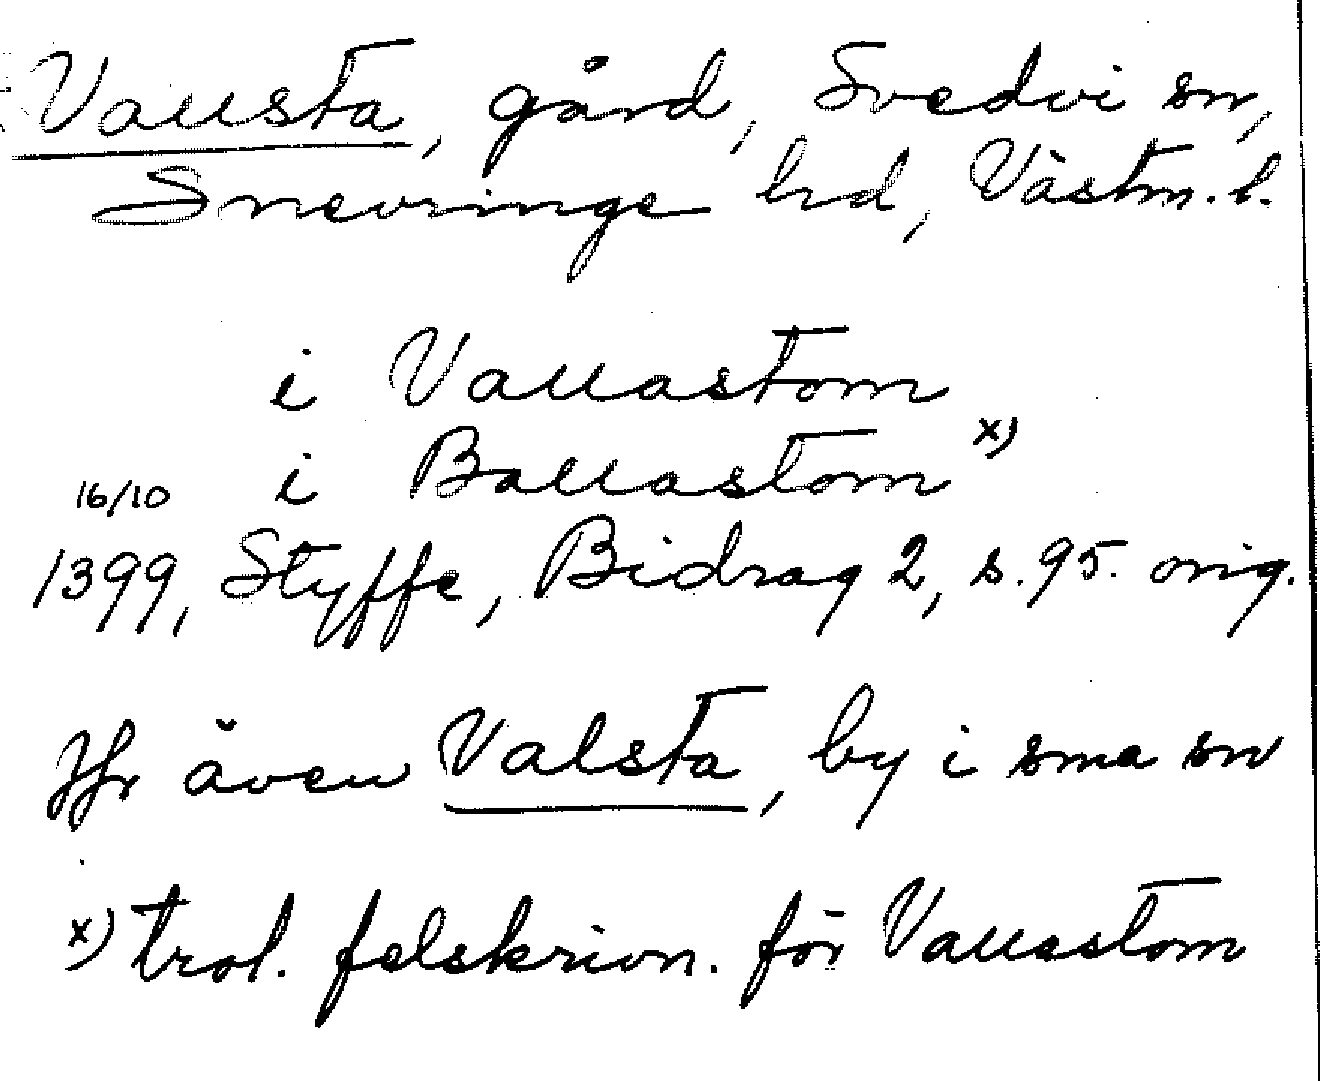 Vallsta, gård, Svedvi sn,
Snevringe hd, Västm. l.
i Vallastom
i Ballastom x)
16/10
1399, Styffe, Bidrag 2, s. 95. orig.
Jfr även Valsta, by i sma sn
x) trol. felskrivn. för Vallastom